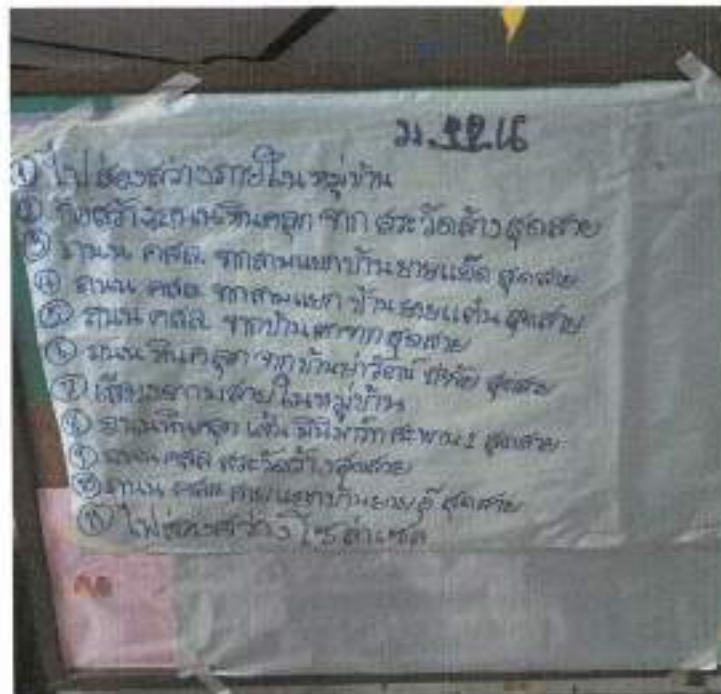 ① ไฟส่องสว่างภายในหมู่บ้าน
② ก่อสร้างถนนหินคลุก จาก สระวัดล้าง สุดสาย
③ ถนน คสล. จากสามแยกบ้านยายแย๊ด สุดสาย
④ ถนน คสล. จากสามแยก บ้านยายแต๋น สุดสาย
⑤ ถนน คสล. จากบ้าน สุดสาย
⑥ ถนน หินคลุก จากบ้าน สุดสาย
⑦ เสียงตามสายในหมู่บ้าน
⑧ ถนนหินคลุก เส้น สุดสาย
⑨ ถนน คสล. สระวัดล้าง สุดสาย
⑩ ถนน คสล. สามแยกบ้านยาย สุดสาย
⑪ ไฟส่องสว่าง โซล่าเซล